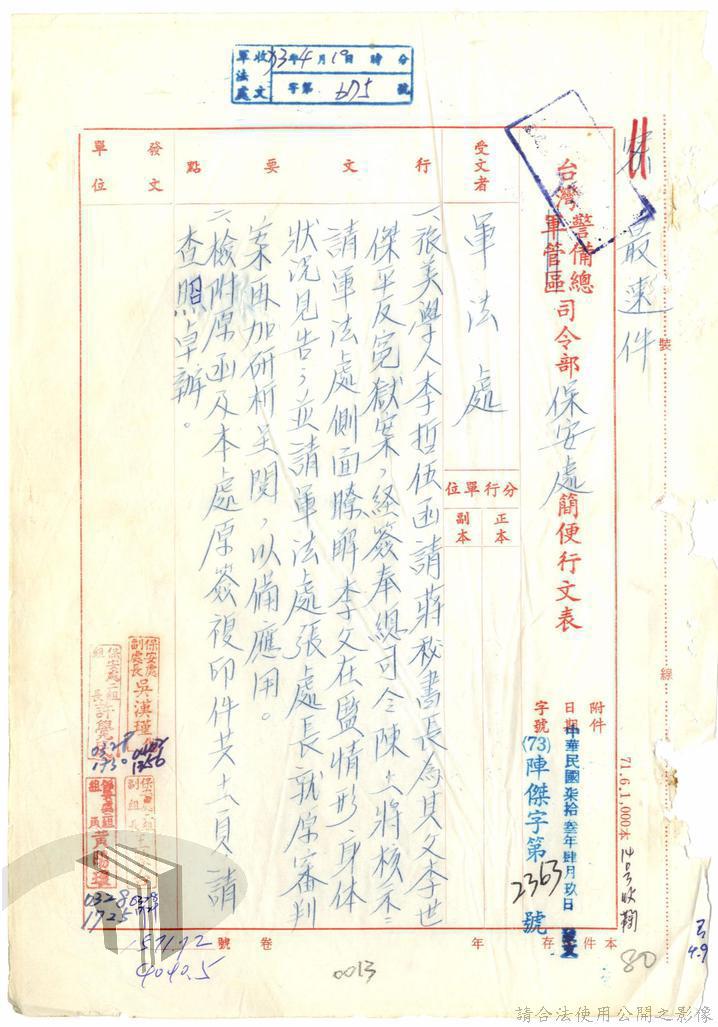 密
最速件
裝
線
71.6.1,000本
14号收鞫
4.9
80
台灣警備總司令部保安處簡便行文表
軍管區
附件
日期 中華民國柒拾叁年肆月玖日發文
字號 (73)陣傑字第2363號
本件存
受文者
軍法處
分行單位
正本
副本
行文要點
一、張美學人李哲伍函請蔣秘書長為其父李世
傑平反冤獄案,經簽奉總司令陳上將核示:
請軍法處側面瞭解李父在監情形身體
狀況見告;並請軍法處張處長就原審判
案再加研析呈閱,以備應用。
二、檢附原函及本處原簽複印件共十二頁,請
查照卓辦。
發文單位
保安處副處長吳漢瑾
保安處二組組長許覺
0328
1730
1350
保安處二組副組長
保安處二組組員黃
0328
1725
1571.72
4040.5
年
卷
號
0013
軍法處收文 73年4月10日 時 分
字第675號
請合法使用公開之影像